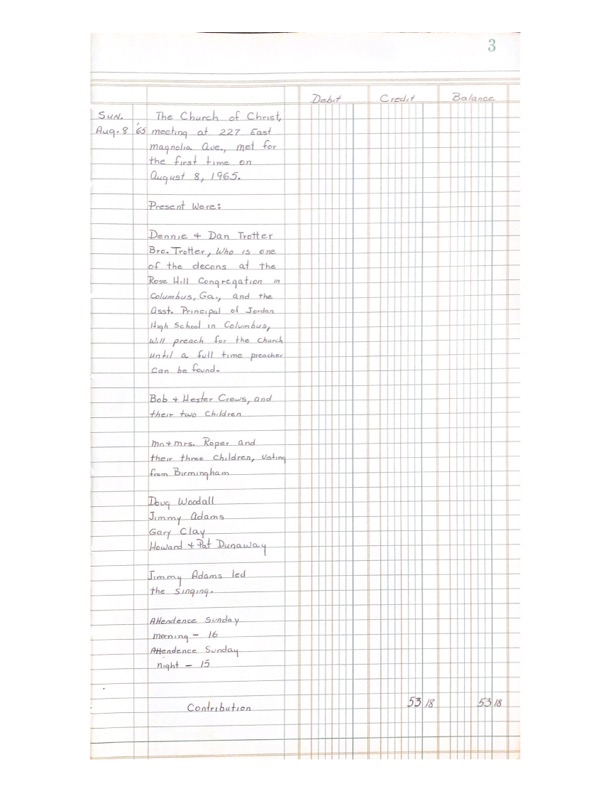 3
Debit Credit Balance
Sun. The Church of Christ,
Aug. 8 '65 meeting at 227 East
magnolia Ave., met for
the first time on
August 8, 1965.
Present Were:
Dennie + Dan Trotter
Bro. Trotter, Who is one
of the decons at the
Rose Hill Congregation in
Columbus, Ga., and the
Asst. Principal of Jordan
High School in Columbus,
Will preach for the Church
until a full time preacher
can be found.
Bob + Hester Crews, and
their two Children
Mr. + Mrs. Roper and
their three Children, visting
from Birmingham
Doug Woodall
Jimmy Adams
Gary Clay
Howard + Pat Dunaway
Jimmy Adams led
the singing.
Attendence Sunday
morning - 16
Attendence Sunday
night - 15
Contribution 53 18 53 18